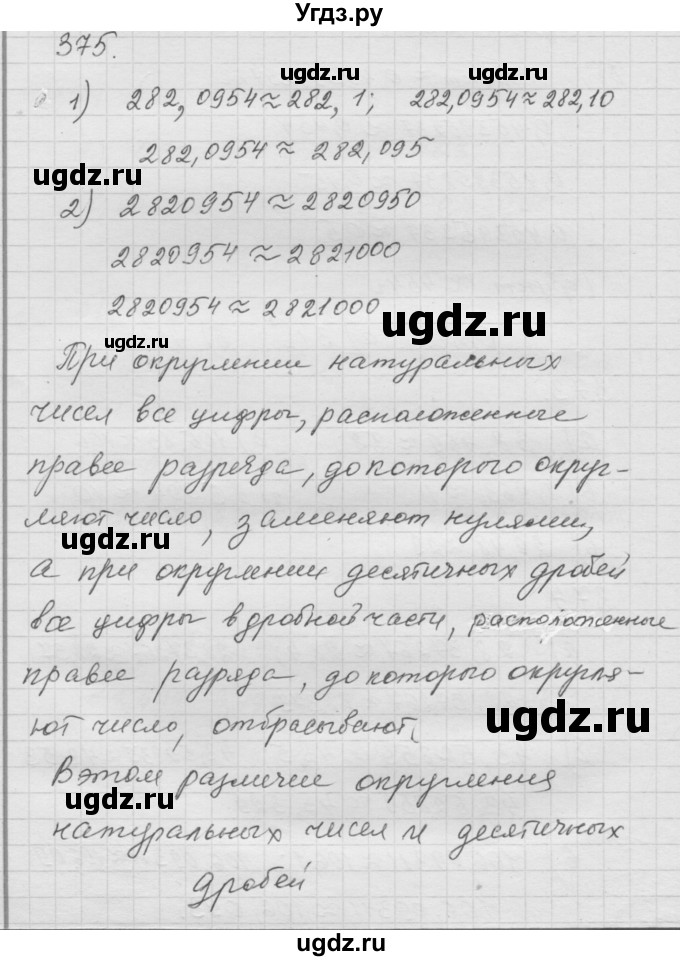 Угдз.ру
375.
ugdz.ru ugdz.ru
1) 282,0954≈282,1; 282,0954≈282,10
282,0954≈ 282,095
ugdz.ru
2) 2820954≈2820950
2820954≈2821000
2820954≈2821000
ugdz.ru
ugdz.ru
При округлении натуральных
чисел все цифры, расположенные
правее разряда, до которого округ-
ляют число, заменяют нулями,
ugdz.ru
а при округлении десятичных дробей
все цифры в дробной части, расположенные
правее разряда, до которого округля-
ют число, отбрасывают.
ugdz.ru
В этом различие округления
ugdz.ru
натуральных чисел и десятичных
дробей
ugdz.ru